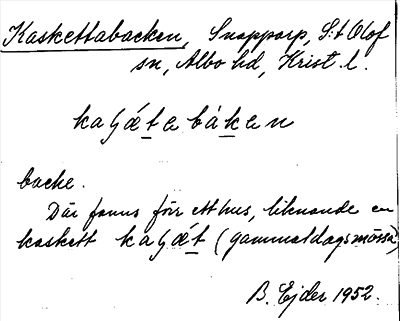 Kaskettabacken, Snapparp, S:t Olof
sn, Albo hd, Krist. l.
backe.
Där fanns förr ett hus, liknande en
kaskett (gammaldags mössa)
B. Ejder 1952.